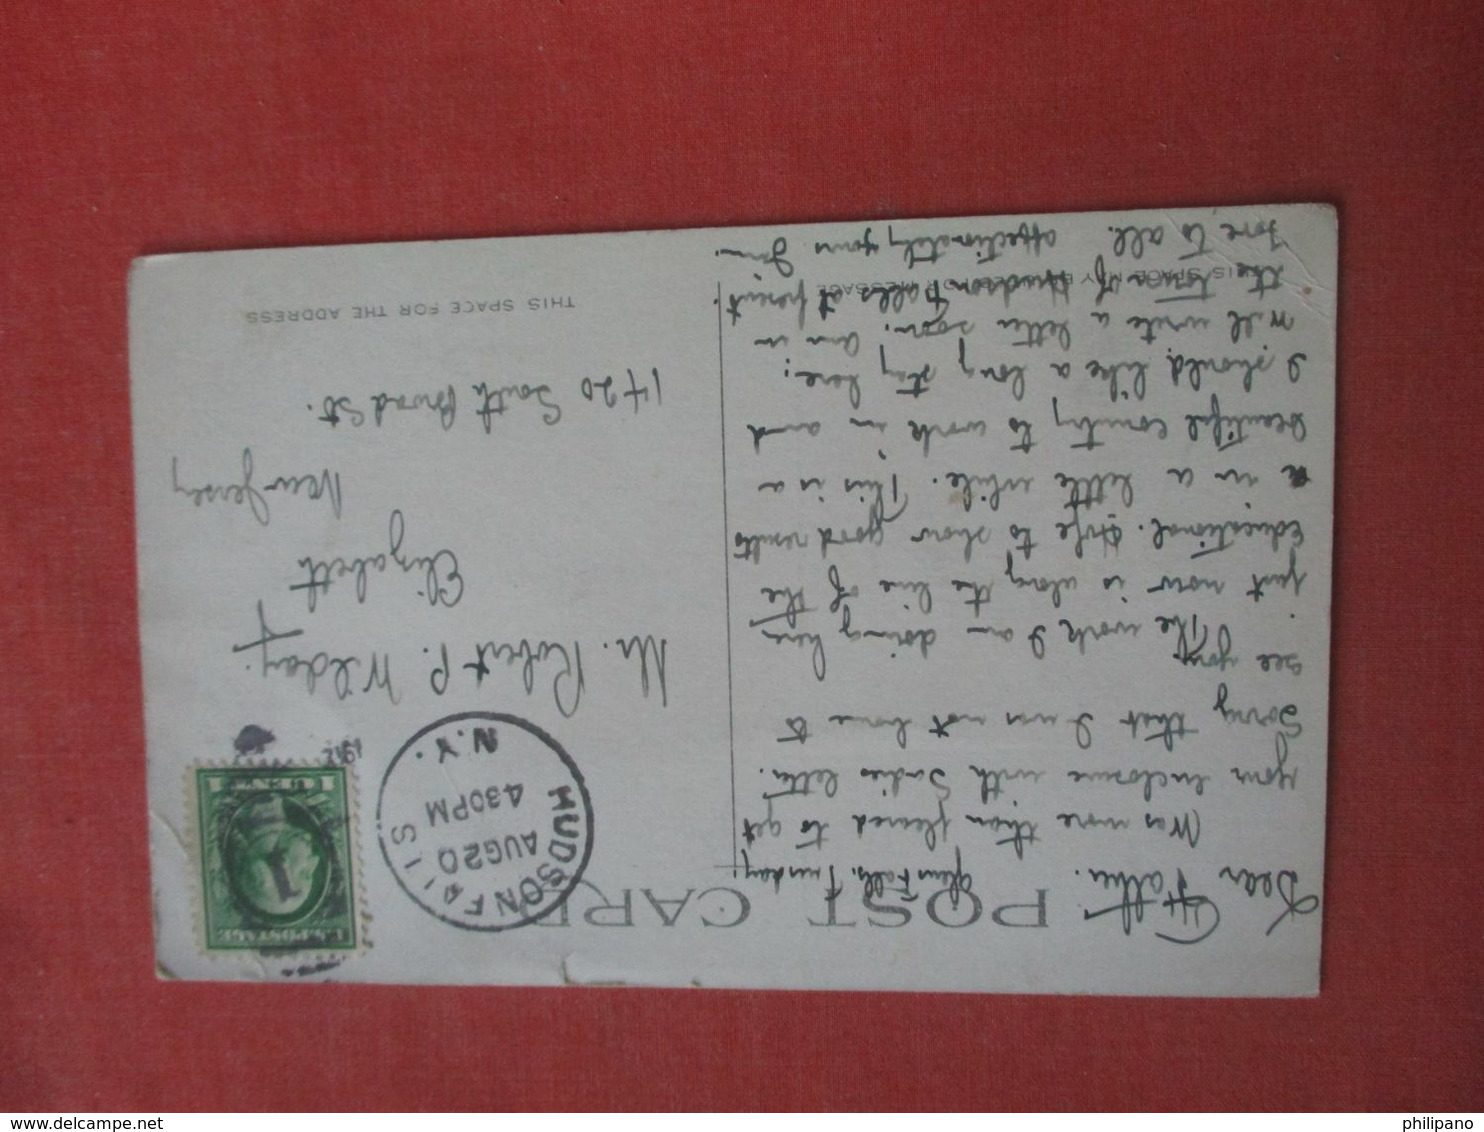 POST CARD
Glens Falls, Tuesday,
Dear Father.
Was more than pleased to get
your inclosure with Sadies letter.
Sorry that I was not home to
see you. The work I am doing here,
just now is along the line of the
Educational. Hope to show good results
in a little while. This is a
beautiful country to work in and
I should like a long stay here;
will write a letter soon; am in
the town of Hudson Falls at present.
Love to all. affectionately yours Jim.
THIS SPACE MAY BE USED FOR MESSAGE
THIS SPACE FOR THE ADDRESS
HUDSON FALLS
AUG 20
4 30 PM
N.Y.
1912
U.S. POSTAGE
1 CENT 1
Mr. Robert P. Wilday.
Elizabeth
New Jersey
1420 South Broad St.
delcampe.net
philipano